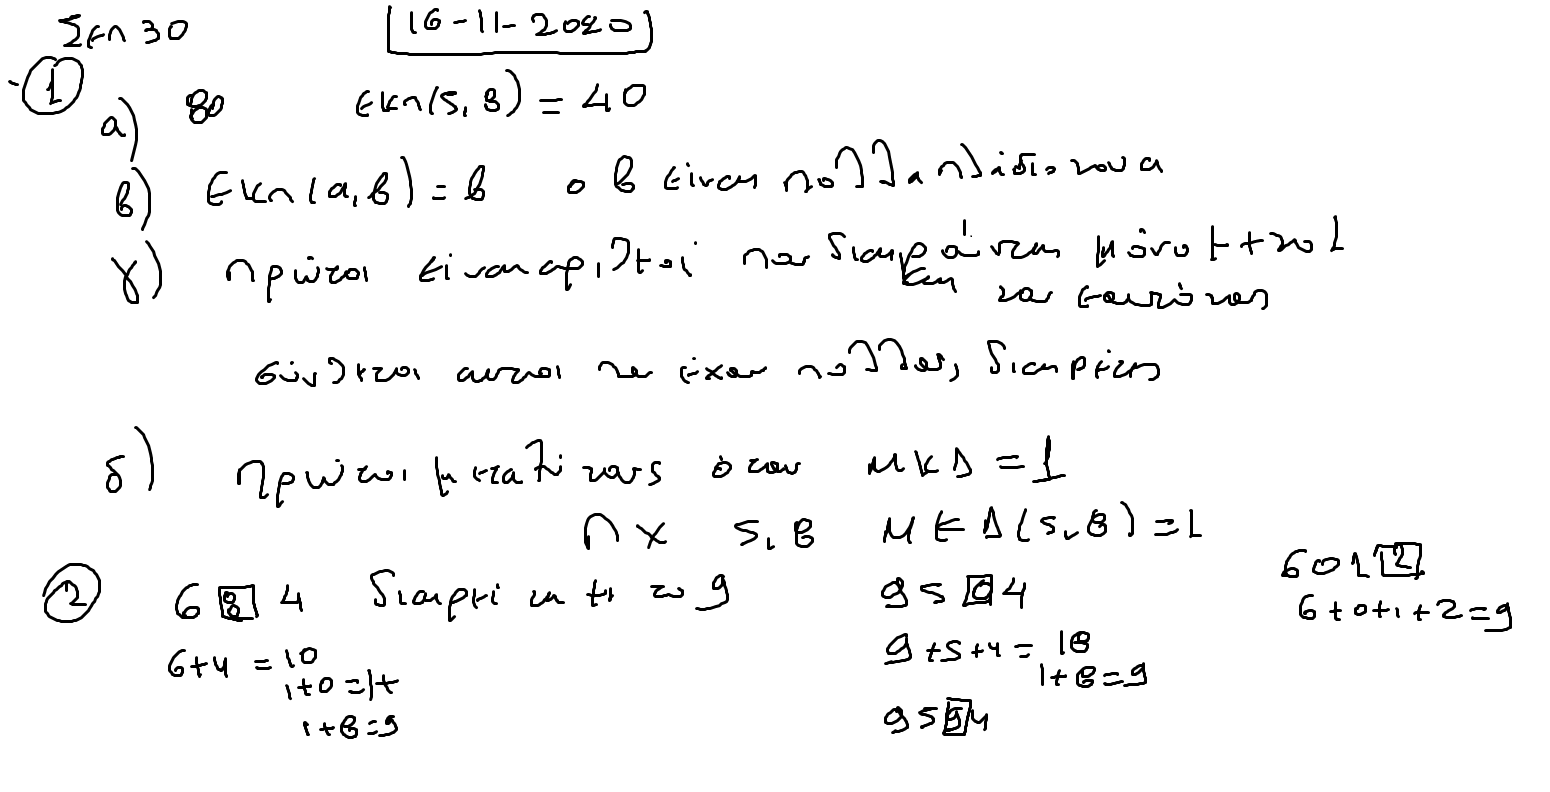 Σελ 30 16-11-2020
① α) 80 Εκπ(5,8) = 40
β) Εκπ(α,β) = β ο β είναι πολλαπλάσιο του α
γ) πρώτοι είναι αριθμοί που διαιρούνται μόνο με το 1
και τον εαυτό τους
σύνθετοι αυτοι που έχουν πολλους διαιρέτες
δ) Πρώτοι μεταξύ τους όταν ΜΚΔ = 1
πχ 5,8 ΜΚΔ(5,8) = 1
② 6 8 4 διαιρείται με το 9
6+4 = 10
1+0 = 1+
1+8=9
95 0 4
9+5+4 = 18
1+8=9
95 9 4
601 2
6+0+1+2=9